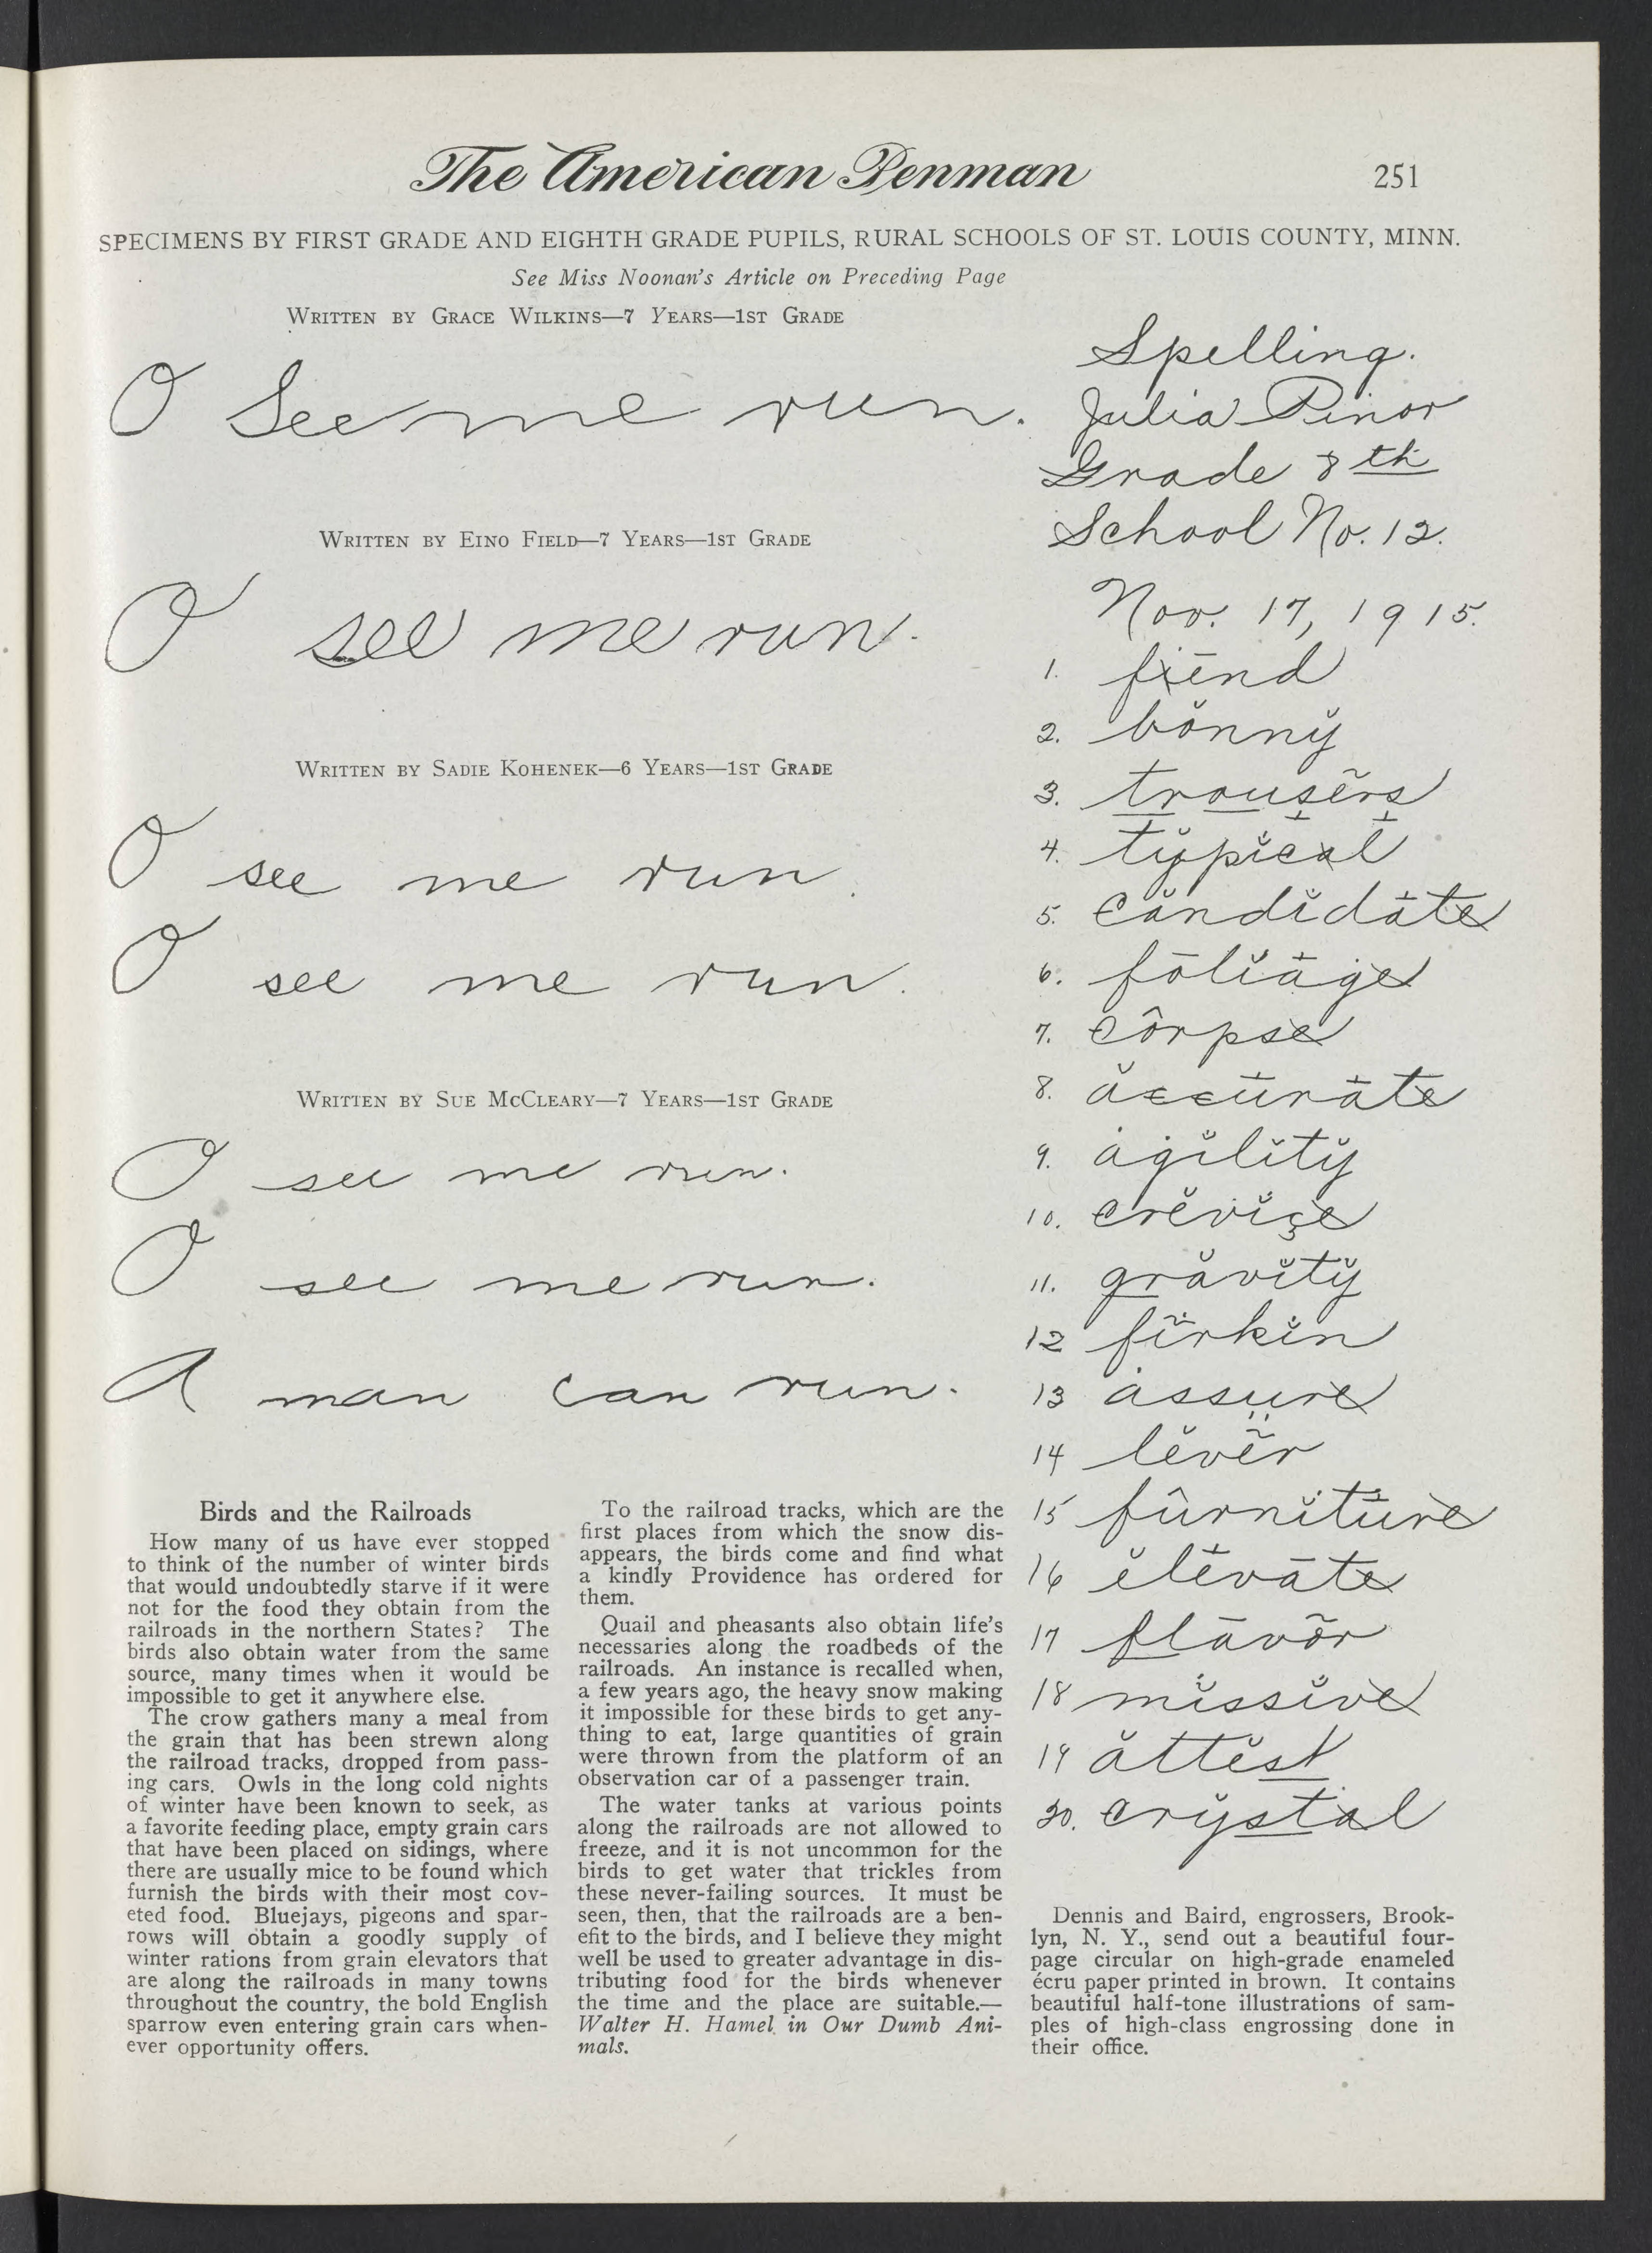 The American Penman
251
SPECIMENS BY FIRST GRADE AND EIGHTH GRADE PUPILS, RURAL SCHOOLS OF ST. LOUIS COUNTY, MINN.
See Miss Noonan's Article on Preceding Page
WRITTEN BY GRACE WILKINS—7 YEARS—1ST GRADE
O See me run.
WRITTEN BY EINO FIELD—7 YEARS—1ST GRADE
O see me run.
WRITTEN BY SADIE KOHENEK—6 YEARS—1ST GRADE
O see me run.
O see me run.
WRITTEN BY SUE MCCLEARY—7 YEARS—1ST GRADE
O see me run.
O see me run.
A man can run.
Spelling.
Julia Pinor
Grade 8th
School No. 12.
Nov. 17, 1915.
1. fiēnd
2. bŏnny̆
3. trousẽrs
4. ty̆pĭcal
5. căndĭdāte
6. fōlĭāge
7. côrpse
8. ăccūrāte
9. ȧgĭlĭty̆
10. crĕvĭçe
11. grăvĭty̆
12 fĩrkĭn
13 assṳre
14 lĕvẽr
15 fûrnĭtūre
16 ĕlēvāte
17 flāvõr
18 mĭssĭve
19 ăttĕst
20. cry̆stal
Birds and the Railroads
How many of us have ever stopped
to think of the number of winter birds
that would undoubtedly starve if it were
not for the food they obtain from the
railroads in the northern States? The
birds also obtain water from the same
source, many times when it would be
impossible to get it anywhere else.
The crow gathers many a meal from
the grain that has been strewn along
the railroad tracks, dropped from pass-
ing cars. Owls in the long cold nights
of winter have been known to seek, as
a favorite feeding place, empty grain cars
that have been placed on sidings, where
there are usually mice to be found which
furnish the birds with their most cov-
eted food. Bluejays, pigeons and spar-
rows will obtain a goodly supply of
winter rations from grain elevators that
are along the railroads in many towns
throughout the country, the bold English
sparrow even entering grain cars when-
ever opportunity offers.
To the railroad tracks, which are the
first places from which the snow dis-
appears, the birds come and find what
a kindly Providence has ordered for
them.
Quail and pheasants also obtain life's
necessaries along the roadbeds of the
railroads. An instance is recalled when,
a few years ago, the heavy snow making
it impossible for these birds to get any-
thing to eat, large quantities of grain
were thrown from the platform of an
observation car of a passenger train.
The water tanks at various points
along the railroads are not allowed to
freeze, and it is not uncommon for the
birds to get water that trickles from
these never-failing sources. It must be
seen, then, that the railroads are a ben-
efit to the birds, and I believe they might
well be used to greater advantage in dis-
tributing food for the birds whenever
the time and the place are suitable.—
Walter H. Hamel in Our Dumb Ani-
mals.
Dennis and Baird, engrossers, Brook-
lyn, N. Y., send out a beautiful four-
page circular on high-grade enameled
écru paper printed in brown. It contains
beautiful half-tone illustrations of sam-
ples of high-class engrossing done in
their office.